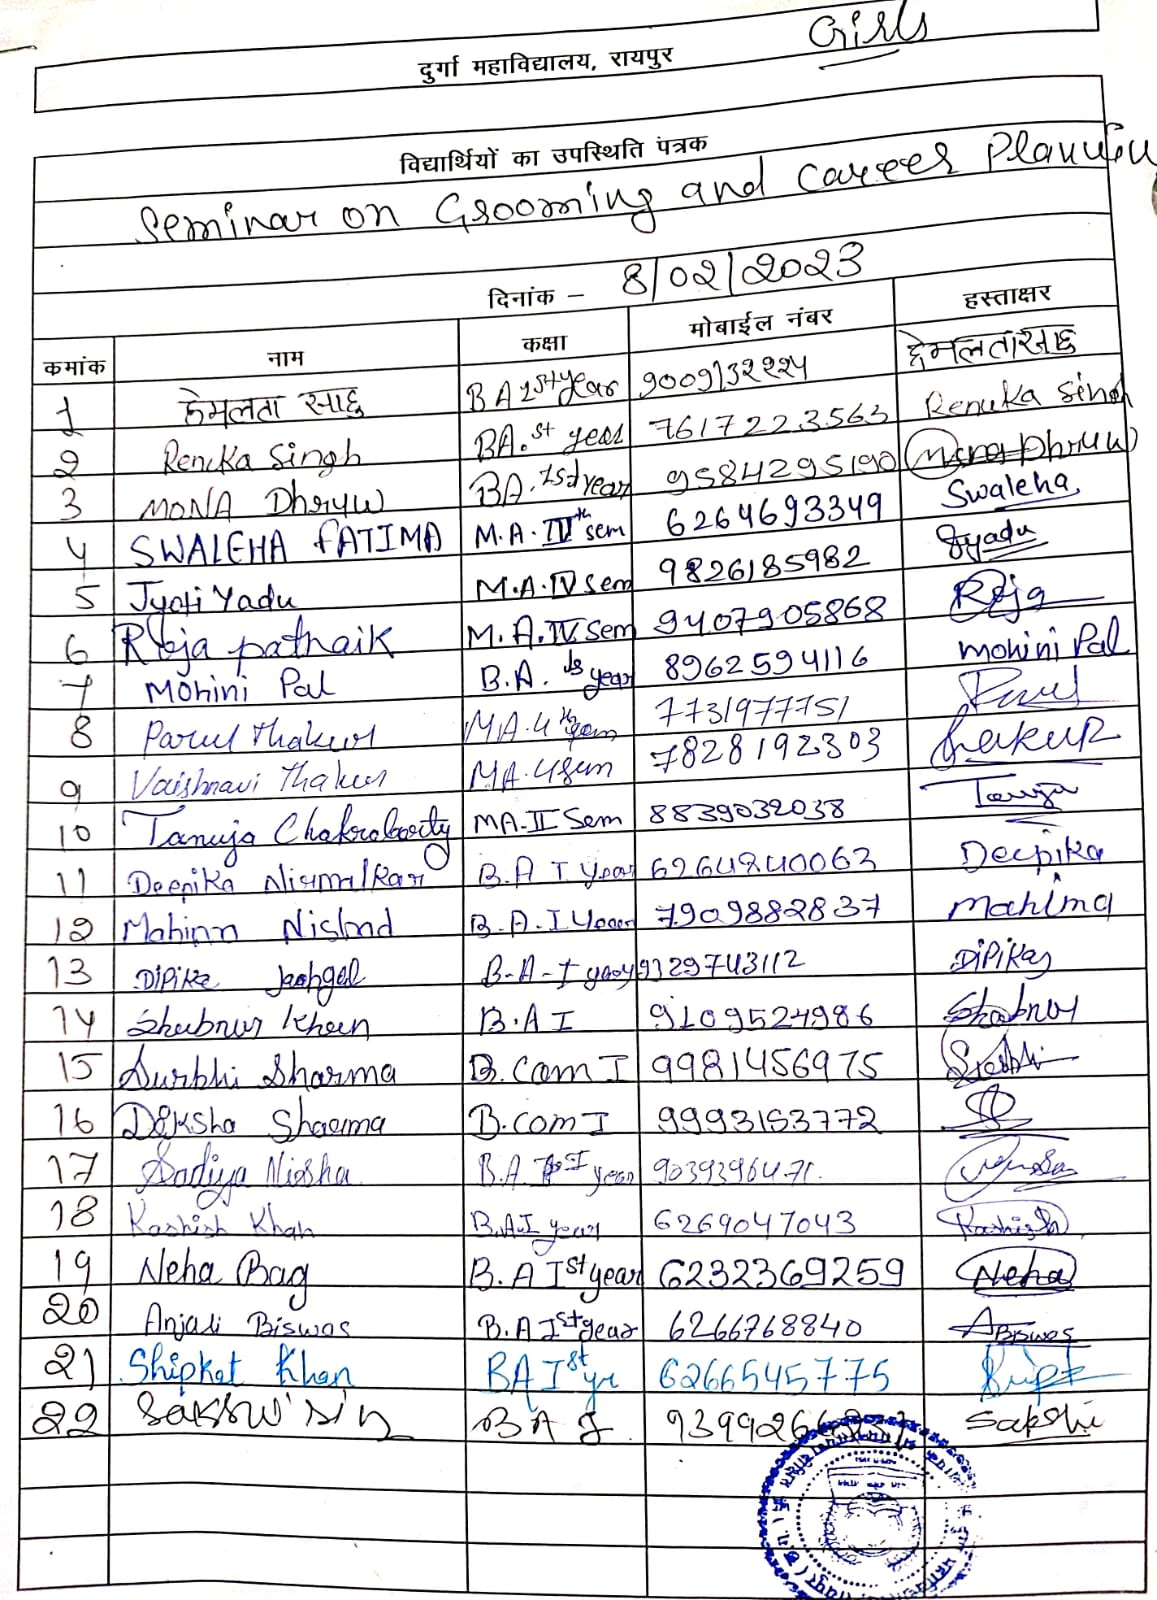 Girls
दुर्गा महाविद्यालय, रायपुर
विद्यार्थियों का उपस्थिति पंत्रक
Seminar on Grooming and Career Planning
दिनांक – 8/02/2023
कमांक नाम कक्षा मोबाईल नंबर हस्ताक्षर
1 हेमलता साहु BA 1st year 9009132224 हेमलता साहु
2 Renuka Singh BA. st year 7617223563 Renuka Singh
3 MONA Dhruw BA. year 9584295190 Dhruw
4 SWALEHA FATIMA M.A. IVth sem 6264693349 Swaleha
5 Jyoti Yadu M.A. IV sem 9826185982 Jyadu
6 Roja patnaik M.A. IV Sem 9407905868 Roja
7 Mohini Pal B.A. Is year 8962594116 mohini Pal
8 Parul Thakur MA. 4th sem 7731977751 Parul
9 Vaishnavi Thakur MA. 4 sem 7828192303 Thakur
10 Tanuja Chakraborty MA-II Sem 8839032038 Tanuja
11 Deepika Nirmalkar B.A I year 6264240063 Deepika
12 Mahima Nishad B.A. I Year 7909882837 Mahima
13 DiPika B-A-I year 9329743112 DiPika
14 Shubnur Khan B.A I 9109524986 Shabnur
15 Surbhi Sharma B.Com I 9981456975 Surbhi
16 Diksha Sharma B.com I 9993153772
17 Sadiya Nisha B.A. I year 9039396471.
18 Kashish Khan B.A I year 6269047043 Kashish
19 Neha Bag B.A Ist year 6232369259 Neha
20 Anjali Biswas B.A Ist year 6266768840 ABiswas
21 Shipkat Khan BA Ist yr 6266545775
22 BA I Sakshi